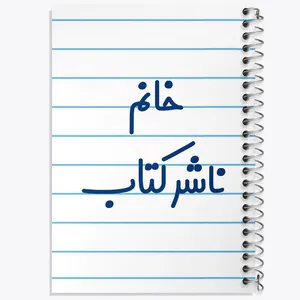 خانم
ناشر کتاب